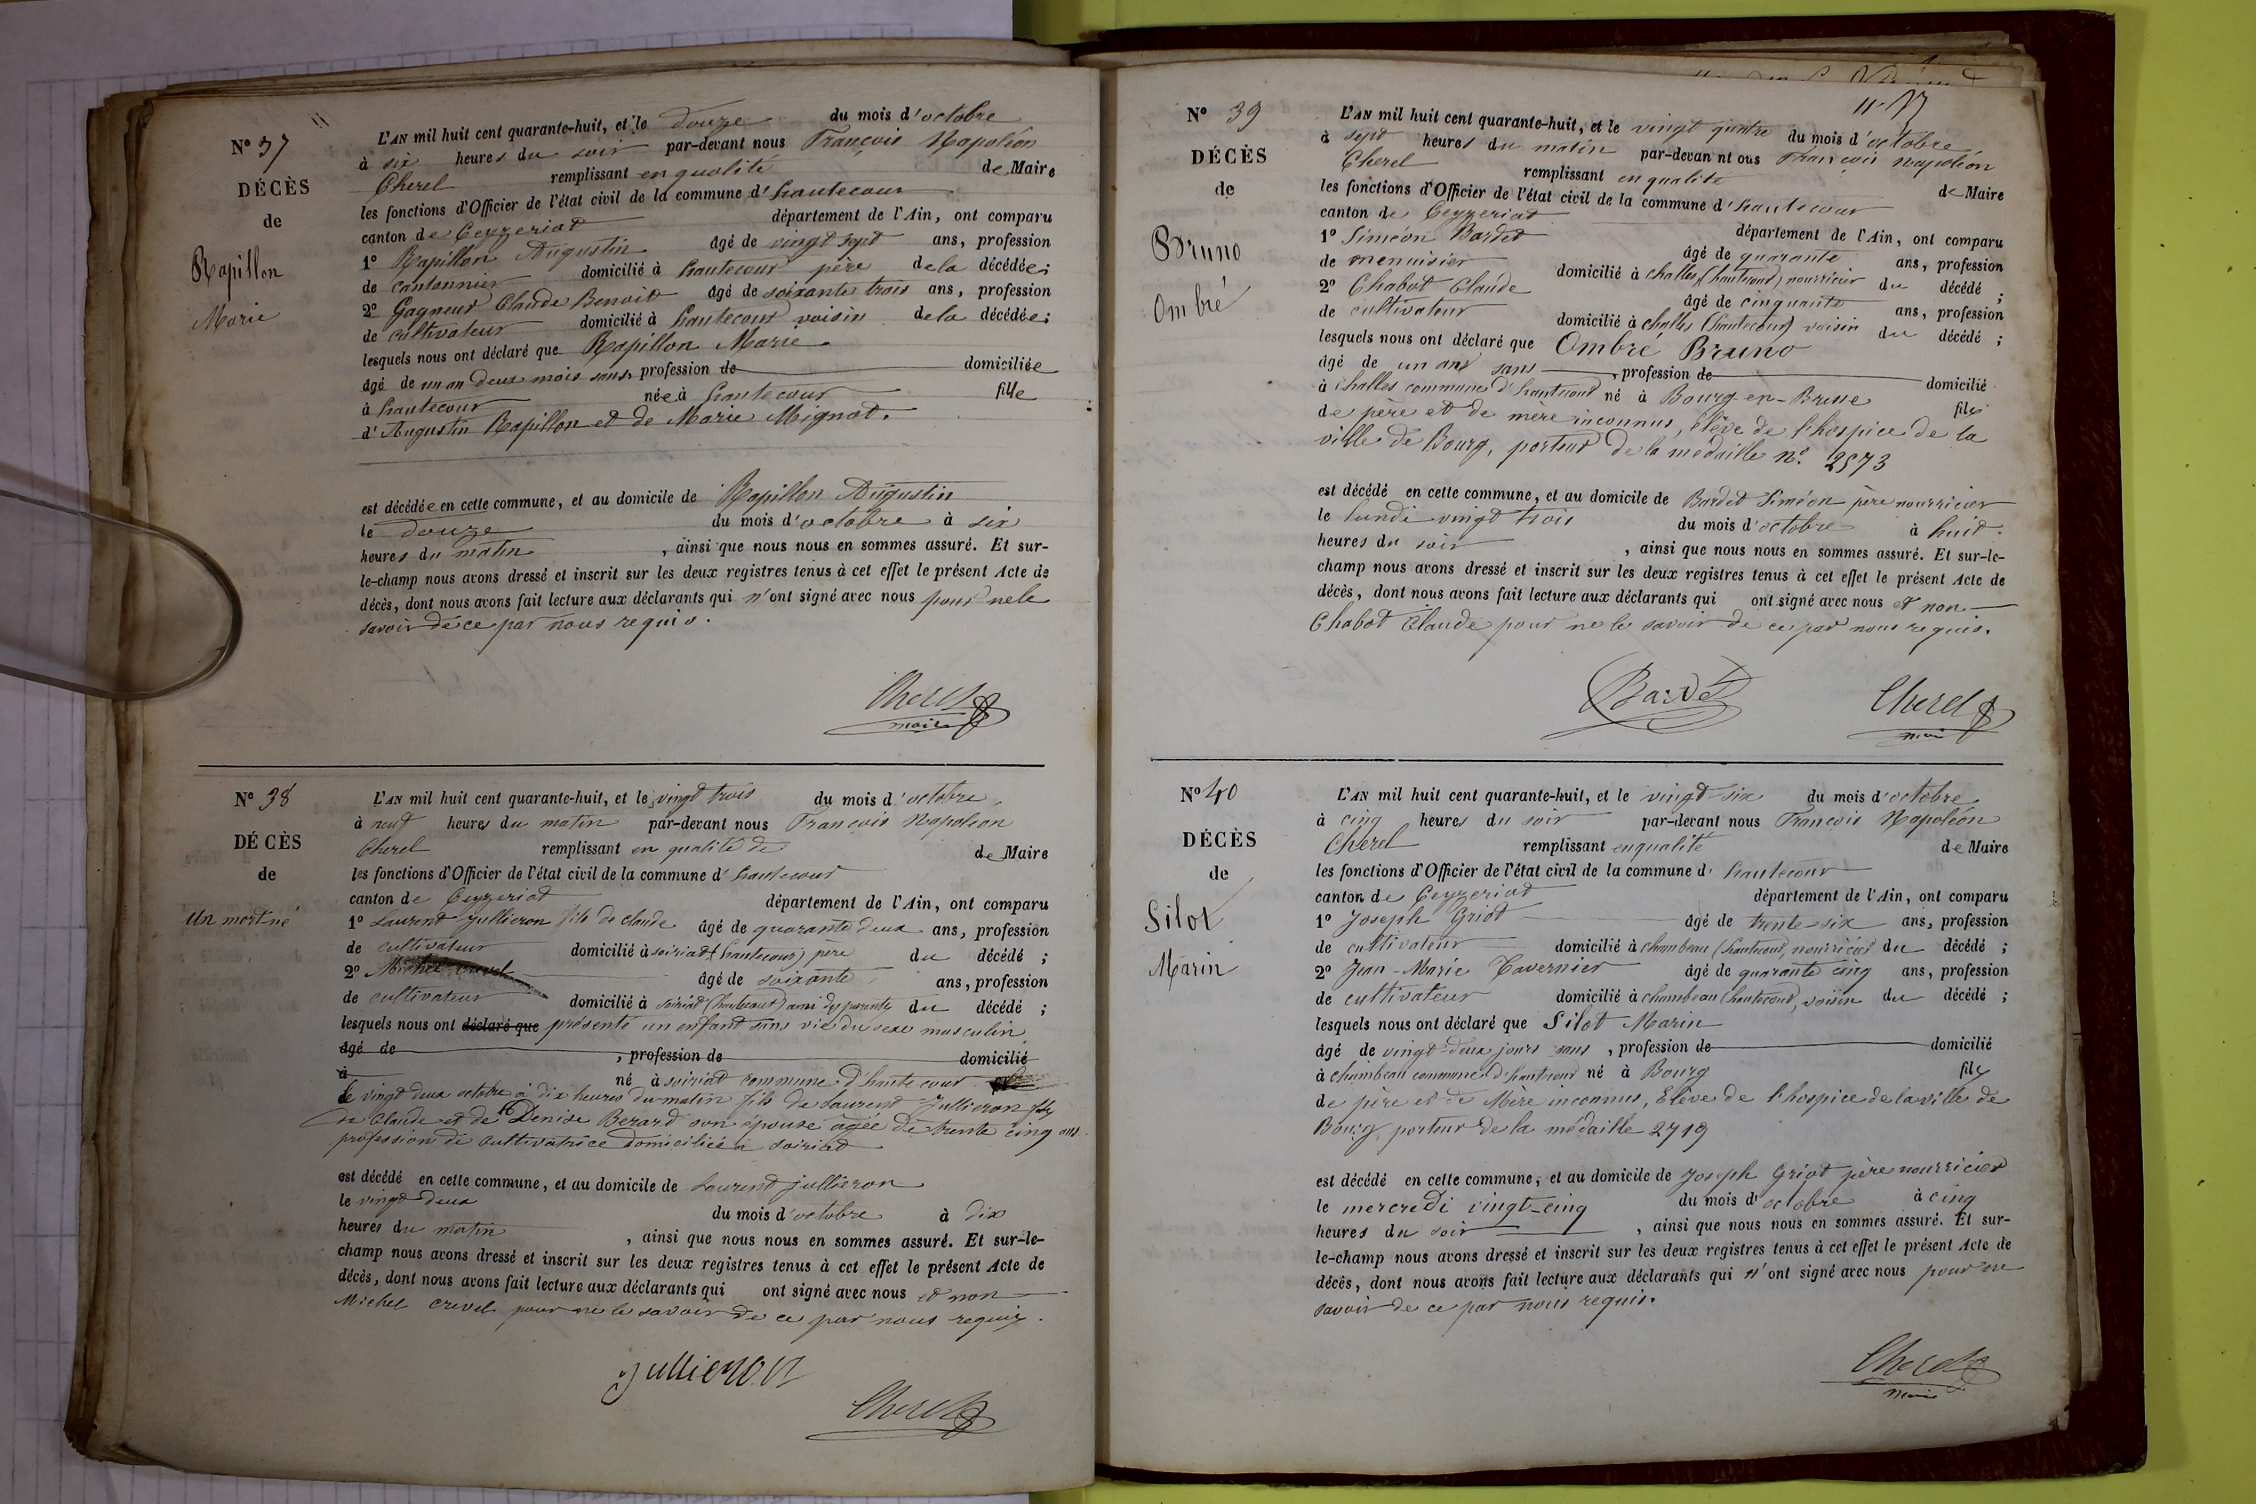 N° 37
DÉCÈS
de
Rapillon
Marie
L'AN mil huit cent quarante-huit, et le douze du mois d'octobre
à six heures du soir par-devant nous François Napoléon
Cherel remplissant en qualité de Maire
les fonctions d'Officier de l'état civil de la commune d'hautecour
canton de Ceyzeriat département de l'Ain, ont comparu
1° Rapillon Augustin âgé de vingt sept ans, profession
de cantonnier domicilié à hautecour père de la décédée;
2° Gagneur Claude Benoit âgé de soixante trois ans, profession
de cultivateur domicilié à hautecour voisin de la décédée;
lesquels nous ont déclaré que Rapillon Marie
âgé de un an deux mois sans, profession de domiciliée
à hautecour née à hautecour fille
d'Augustin Rapillon et de Marie Mignot.
est décédée en cette commune, et au domicile de Rapillon Augustin
le douze du mois d'octobre à six
heures du matin, ainsi que nous nous en sommes assuré. Et sur-
le-champ nous avons dressé et inscrit sur les deux registres tenus à cet effet le présent Acte de
décès, dont nous avons fait lecture aux déclarants qui n'ont signé avec nous pour ne le
savoir de ce par nous requis.
Cherel
maire
N° 38
DÉCÈS
de
un mort né
L'AN mil huit cent quarante-huit, et le vingt trois du mois d'octobre
à neuf heures du matin par-devant nous François Napoléon
Cherel remplissant en qualité de de Maire
les fonctions d'Officier de l'état civil de la commune d'hautecour
canton de Ceyzeriat département de l'Ain, ont comparu
1° Laurent Jullieron fils de claude âgé de quarante deux ans, profession
de cultivateur domicilié à soiriat (hautecour) père du décédé;
2° Michel Crevel âgé de soixante ans, profession
de cultivateur domicilié à soiriat (hautecour) ami des parents du décédé;
lesquels nous ont déclaré que présenté un enfant sans vie du sexe masculin
âgé de , profession de domicilié
à né à soiriat commune d'hautecour
le vingt deux octobre à dix heures du matin fils de Laurent Jullieron fils
de Claude et de Denise Berard son épouse agée de trente cinq ans
profession de cultivatrice domiciliée à soiriat
est décédé en cette commune, et au domicile de Laurent Jullieron
le vingt deux du mois d'octobre à dix
heures du matin, ainsi que nous nous en sommes assuré. Et sur-le-
champ nous avons dressé et inscrit sur les deux registres tenus à cet effet le présent Acte de
décès, dont nous avons fait lecture aux déclarants qui ont signé avec nous et non
Michel Crevel pour ne le savoir de ce par nous requis.
Jullieron
Cherel
N° 39
DÉCÈS
de
Bruno
Ombré
L'AN mil huit cent quarante-huit, et le vingt quatre du mois d'octobre
à sept heures du matin par-devan nt ous François Napoléon
Cherel remplissant en qualité de Maire
les fonctions d'Officier de l'état civil de la commune d'hautecour
canton de Ceyzeriat département de l'Ain, ont comparu
1° Siméon Bardet âgé de quarante ans, profession
de menuisier domicilié à challes (hautecour) nourricier du décédé;
2° Chabot Claude âgé de cinquante ans, profession
de cultivateur domicilié à challes (hautecour) voisin du décédé;
lesquels nous ont déclaré que Ombré Bruno
âgé de un ans sans, profession de domicilié
à challes commune d'hautecour né à Bourg-en-Bresse fils
de père et de mère inconnus, élève de l'hospice de la
ville de Bourg, porteur de la médaille n°. 2573
est décédé en cette commune, et au domicile de Bardet Siméon père nourricier
le lundi vingt trois du mois d'octobre à huit
heures du soir, ainsi que nous nous en sommes assuré. Et sur-le-
champ nous avons dressé et inscrit sur les deux registres tenus à cet effet le présent Acte de
décès, dont nous avons fait lecture aux déclarants qui ont signé avec nous et non
Chabot Claude pour ne le savoir de ce par nous requis.
Bardet
Cherel
maire
N° 40
DÉCÈS
de
Silot
Marin
L'AN mil huit cent quarante-huit, et le vingt-six du mois d'octobre
à cinq heures du soir par-devant nous François Napoléon
Cherel remplissant en qualité de Maire
les fonctions d'Officier de l'état civil de la commune d'hautecour
canton de Ceyzeriat département de l'Ain, ont comparu
1° Joseph Griot âgé de trente-six ans, profession
de cultivateur domicilié à chambeau (hautecour) nourricier du décédé;
2° Jean-Marie Tavernier âgé de quarante cinq ans, profession
de cultivateur domicilié à chambeau (hautecour), voisin du décédé;
lesquels nous ont déclaré que Silot Marin
âgé de vingt-deux jours sans, profession de domicilié
à chambeau commune d'hautecour né à Bourg fils
de père et de Mère inconnus, Elève de l'hospice de la ville de
Bourg, porteur de la médaille 2719
est décédé en cette commune, et au domicile de Joseph Griot père nourricier
le mercredi vingt-cinq du mois d'octobre à cinq
heures du soir, ainsi que nous nous en sommes assuré. Et sur-
le-champ nous avons dressé et inscrit sur les deux registres tenus à cet effet le présent Acte de
décès, dont nous avons fait lecture aux déclarants qui n'ont signé avec nous pour ne
savoir de ce par nous requis.
Cherel
maire